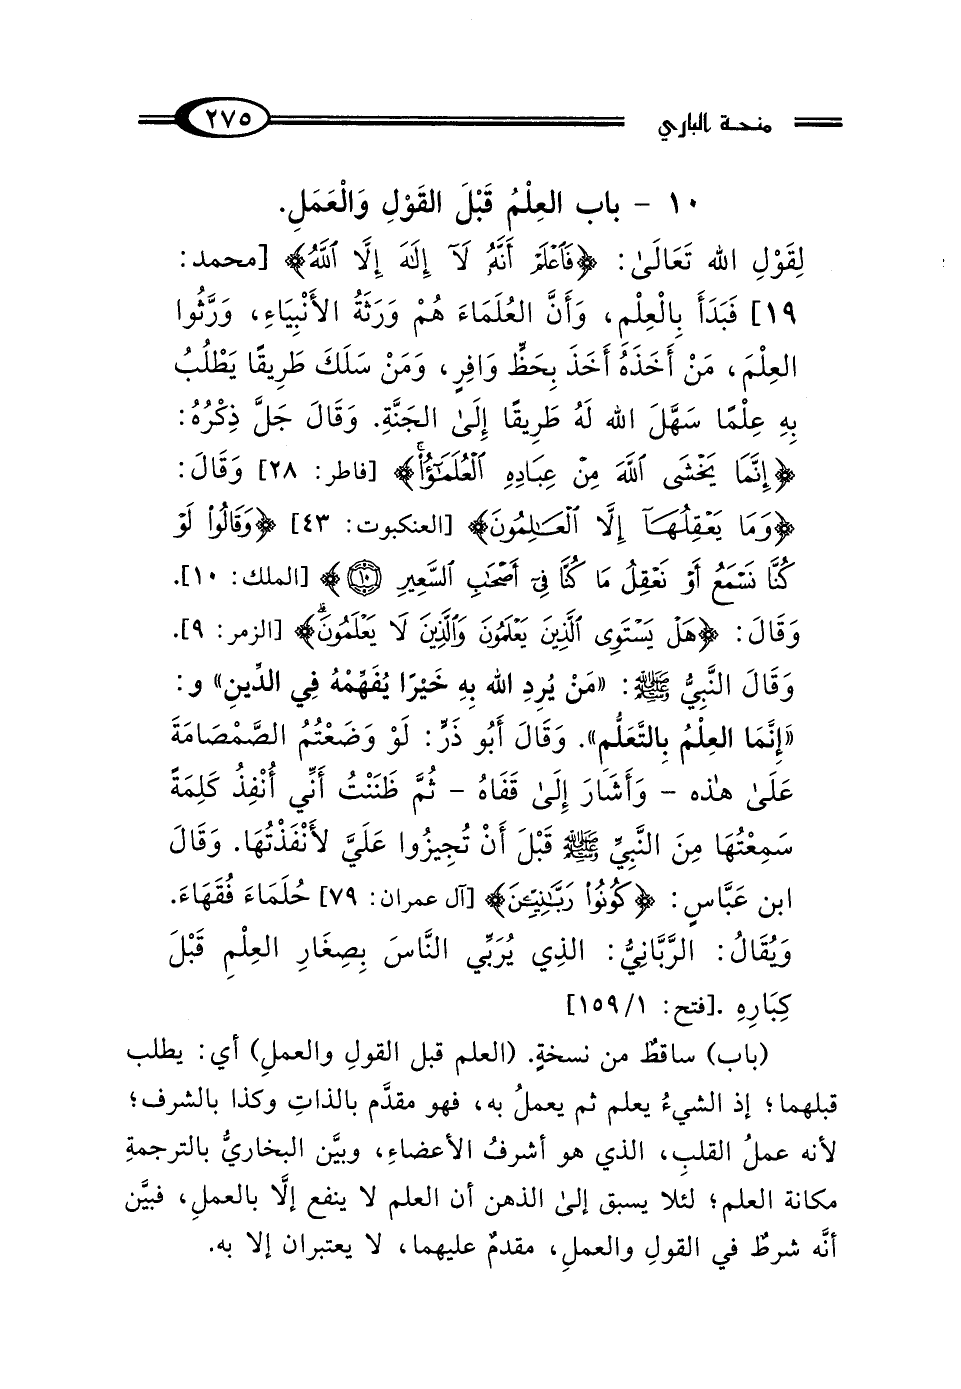 منحة الباري ٢٧٥
١٠ - باب العِلْمُ قَبْلَ القَوْلِ وَالْعَمَلِ.
لِقَوْلِ الله تَعَالَىٰ: ﴿فَٱعْلَمْ أَنَّهُۥ لَآ إِلَٰهَ إِلَّا ٱللَّهُ﴾ [محمد:
١٩] فَبَدَأَ بِالْعِلْمِ، وَأَنَّ العُلَمَاءَ هُمْ وَرَثَةُ الأَنْبِيَاءِ، وَرَّثُوا
العِلْمَ، مَنْ أَخَذَهُ أَخَذَ بِحَظٍّ وَافِرٍ، وَمَنْ سَلَكَ طَرِيقًا يَطْلُبُ
بِهِ عِلْمًا سَهَّلَ الله لَهُ طَرِيقًا إِلَىٰ الجَنَّةِ. وَقَالَ جَلَّ ذِكْرُهُ:
﴿إِنَّمَا يَخْشَى ٱللَّهَ مِنْ عِبَادِهِ ٱلْعُلَمَٰٓؤُا۟ۗ﴾ [فاطر: ٢٨] وَقَالَ:
﴿وَمَا يَعْقِلُهَآ إِلَّا ٱلْعَٰلِمُونَ﴾ [العنكبوت: ٤٣] ﴿وَقَالُوا۟ لَوْ
كُنَّا نَسْمَعُ أَوْ نَعْقِلُ مَا كُنَّا فِىٓ أَصْحَٰبِ ٱلسَّعِيرِ ١٠﴾ [الملك: ١٠].
وَقَالَ: ﴿هَلْ يَسْتَوِى ٱلَّذِينَ يَعْلَمُونَ وَٱلَّذِينَ لَا يَعْلَمُونَۗ﴾ [الزمر: ٩].
وَقَالَ النَّبِيُّ ﷺ: «مَنْ يُرِدِ الله بِهِ خَيْرًا يُفَهِّمْهُ فِي الدِّينِ» و:
«إِنَّمَا العِلْمُ بِالتَّعَلُّمِ». وَقَالَ أَبُو ذَرٍّ: لَوْ وَضَعْتُمُ الصَّمْصَامَةَ
عَلَىٰ هٰذه - وَأَشَارَ إِلَىٰ قَفَاهُ - ثُمَّ ظَنَنْتُ أَنِّي أُنْفِذُ كَلِمَةً
سَمِعْتُهَا مِنَ النَّبِيِّ ﷺ قَبْلَ أَنْ تُجِيزُوا عَلَيَّ لأَنْفَذْتُهَا. وَقَالَ
ابن عَبَّاسٍ: ﴿كُونُوا۟ رَبَّٰنِيِّـۧنَ﴾ [آل عمران: ٧٩] حُلَمَاءَ فُقَهَاءَ.
وَيُقَالُ: الرَّبَّانِيُّ: الذِي يُرَبِّي النَّاسَ بِصِغَارِ العِلْمِ قَبْلَ
كِبَارِهِ .[فتح: ١/ ١٥٩]
(باب) ساقطٌ من نسخةٍ. (العلم قبل القولِ والعملِ) أي: يطلب
قبلهما؛ إذ الشيءُ يعلم ثم يعملُ به، فهو مقدَّم بالذاتِ وكذا بالشرف؛
لأنه عملُ القلبِ، الذي هو أشرفُ الأعضاءِ، وبيَّن البخاريُّ بالترجمةِ
مكانة العلم؛ لئلا يسبق إلىٰ الذهن أن العلم لا ينفع إلَّا بالعملِ، فبيَّن
أنَّه شرطٌ في القولِ والعملِ، مقدمٌ عليهما، لا يعتبران إلا به.